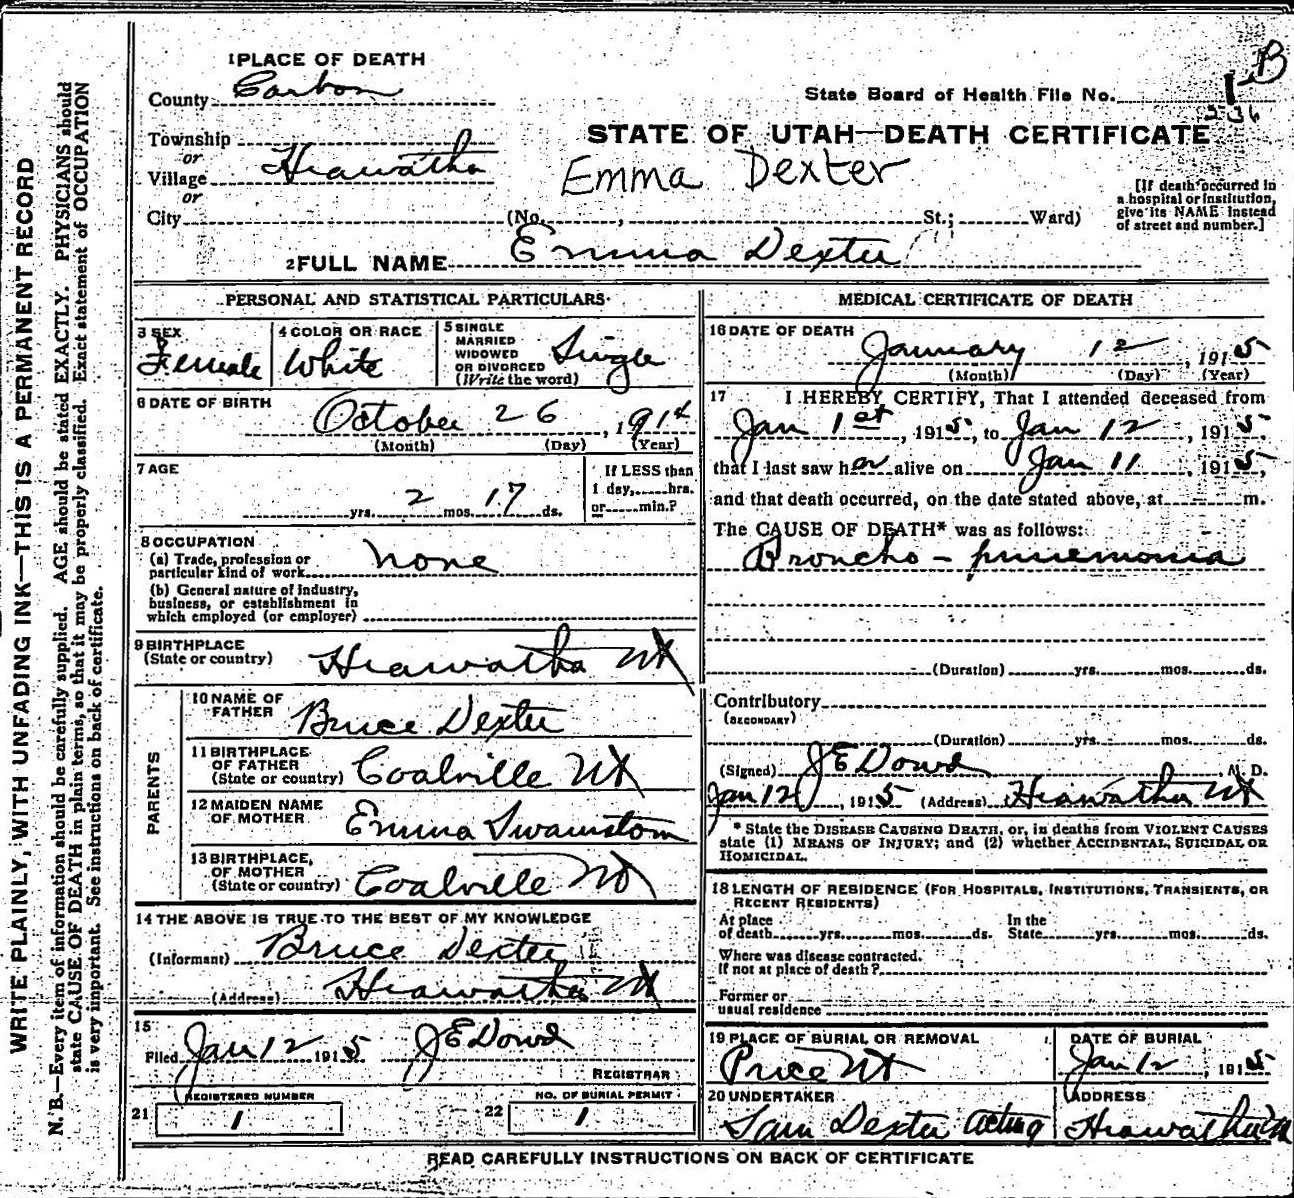 WRITE PLAINLY, WITH UNFADING INK—THIS IS A PERMANENT RECORD
N. B.—Every item of information should be carefully supplied. AGE should be stated EXACTLY. PHYSICIANS should
state CAUSE OF DEATH in plain terms, so that it may be properly classified. Exact statement of OCCUPATION
is very important. See instructions on back of certificate.
1 PLACE OF DEATH
County Carbon
Township
or
Village Hiawatha
or
City (No. , St.; Ward)
B
State Board of Health File No. 1
236
STATE OF UTAH—DEATH CERTIFICATE
Emma Dexter
[If death occurred in
a hospital or institution,
give its NAME instead
of street and number.]
2 FULL NAME Emma Dexter
PERSONAL AND STATISTICAL PARTICULARS
3 SEX Female
4 COLOR OR RACE White
5 SINGLE
MARRIED
WIDOWED
OR DIVORCED
(Write the word) Single
6 DATE OF BIRTH
October 26, 1914
(Month) (Day) (Year)
7 AGE
yrs. 2 mos. 17 ds.
If LESS than
1 day, hrs.
or min.?
8 OCCUPATION
(a) Trade, profession or
particular kind of work none
(b) General nature of industry,
business, or establishment in
which employed (or employer)
9 BIRTHPLACE
(State or country) Hiawatha Ut
PARENTS
10 NAME OF
FATHER Bruce Dexter
11 BIRTHPLACE
OF FATHER
(State or country) Coalville Ut
12 MAIDEN NAME
OF MOTHER Emma Swainstom
13 BIRTHPLACE,
OF MOTHER
(State or country) Coalville Ut
14 THE ABOVE IS TRUE TO THE BEST OF MY KNOWLEDGE
(Informant) Bruce Dexter
(Address) Hiawatha Ut
15
Filed Jan 12 1915 J E Dowd
REGISTRAR
REGISTERED NUMBER
21 1
NO. OF BURIAL PERMIT
22 1
MEDICAL CERTIFICATE OF DEATH
16 DATE OF DEATH
January 12, 1915
(Month) (Day) (Year)
17 I HEREBY CERTIFY, That I attended deceased from
Jan 1st, 1915, to Jan 12, 1915,
that I last saw her alive on Jan 11, 1915,
and that death occurred, on the date stated above, at m.
The CAUSE OF DEATH* was as follows:
Broncho - pnuemonia
(Duration) yrs. mos. ds.
Contributory
(SECONDARY)
(Duration) yrs. mos. ds.
(Signed) J E Dowd, M. D.
Jan 12, 1915 (Address) Hiawatha Ut
* State the DISEASE CAUSING DEATH, or, in deaths from VIOLENT CAUSES
state (1) MEANS OF INJURY; and (2) whether ACCIDENTAL, SUICIDAL OR
HOMICIDAL.
18 LENGTH OF RESIDENCE (FOR HOSPITALS, INSTITUTIONS, TRANSIENTS, OR
RECENT RESIDENTS)
At place
of death yrs. mos. ds.
In the
State yrs. mos. ds.
Where was disease contracted.
if not at place of death?
Former or
usual residence
19 PLACE OF BURIAL OR REMOVAL
Price Ut
DATE OF BURIAL
Jan 12, 1915
20 UNDERTAKER
Sam Dexter acting
ADDRESS
Hiawatha Ut
READ CAREFULLY INSTRUCTIONS ON BACK OF CERTIFICATE